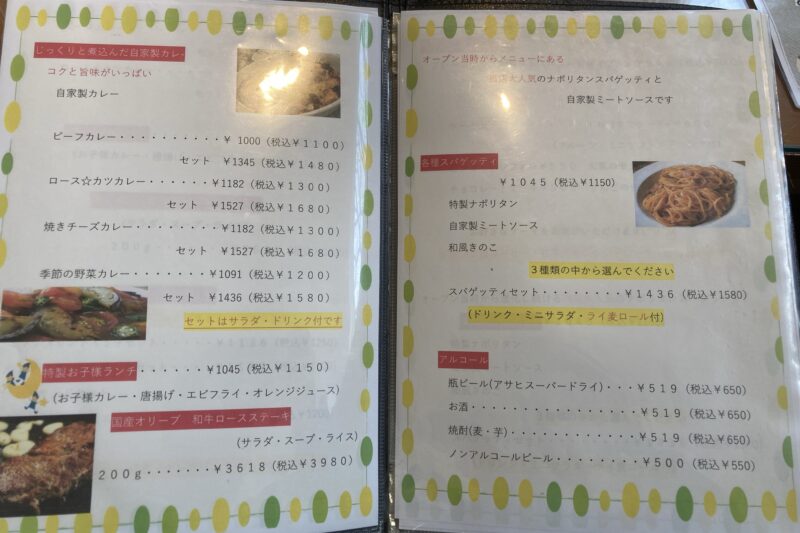 じっくりと煮込んだ自家製カレー
コクと旨味がいっぱい
自家製カレー
ビーフカレー・・・・・・・・・・￥1000(税込￥1100)
セット ￥1345(税込￥1480)
ロース☆カツカレー・・・・・・￥1182(税込￥1300)
セット ￥1527(税込￥1680)
焼きチーズカレー・・・・・・・￥1182(税込￥1300)
セット ￥1527(税込￥1680)
季節の野菜カレー・・・・・・・￥1091(税込￥1200)
セット ￥1436(税込￥1580)
セットはサラダ・ドリンク付です
特製お子様ランチ・・・・・・￥1045(税込￥1150)
(お子様カレー・唐揚げ・エビフライ・オレンジジュース)
国産オリーブ 和牛ロースステーキ
(サラダ・スープ・ライス)
200g・・・・・・・￥3618(税込￥3980)
オープン当時からメニューにある
当店大人気のナポリタンスパゲッティと
自家製ミートソースです
各種スパゲッティ
￥1045(税込￥1150)
特製ナポリタン
自家製ミートソース
和風きのこ
３種類の中から選んでください
スパゲッティセット・・・・・・・・￥1436(税込￥1580)
(ドリンク・ミニサラダ・ライ麦ロール付)
アルコール
瓶ビール(アサヒスーパードライ)・・・￥519(税込￥650)
お酒・・・・・・・・・・・・・・・・￥519(税込￥650)
焼酎(麦・芋)・・・・・・・・・・・・￥519(税込￥650)
ノンアルコールビール・・・・・・・・￥500(税込￥550)